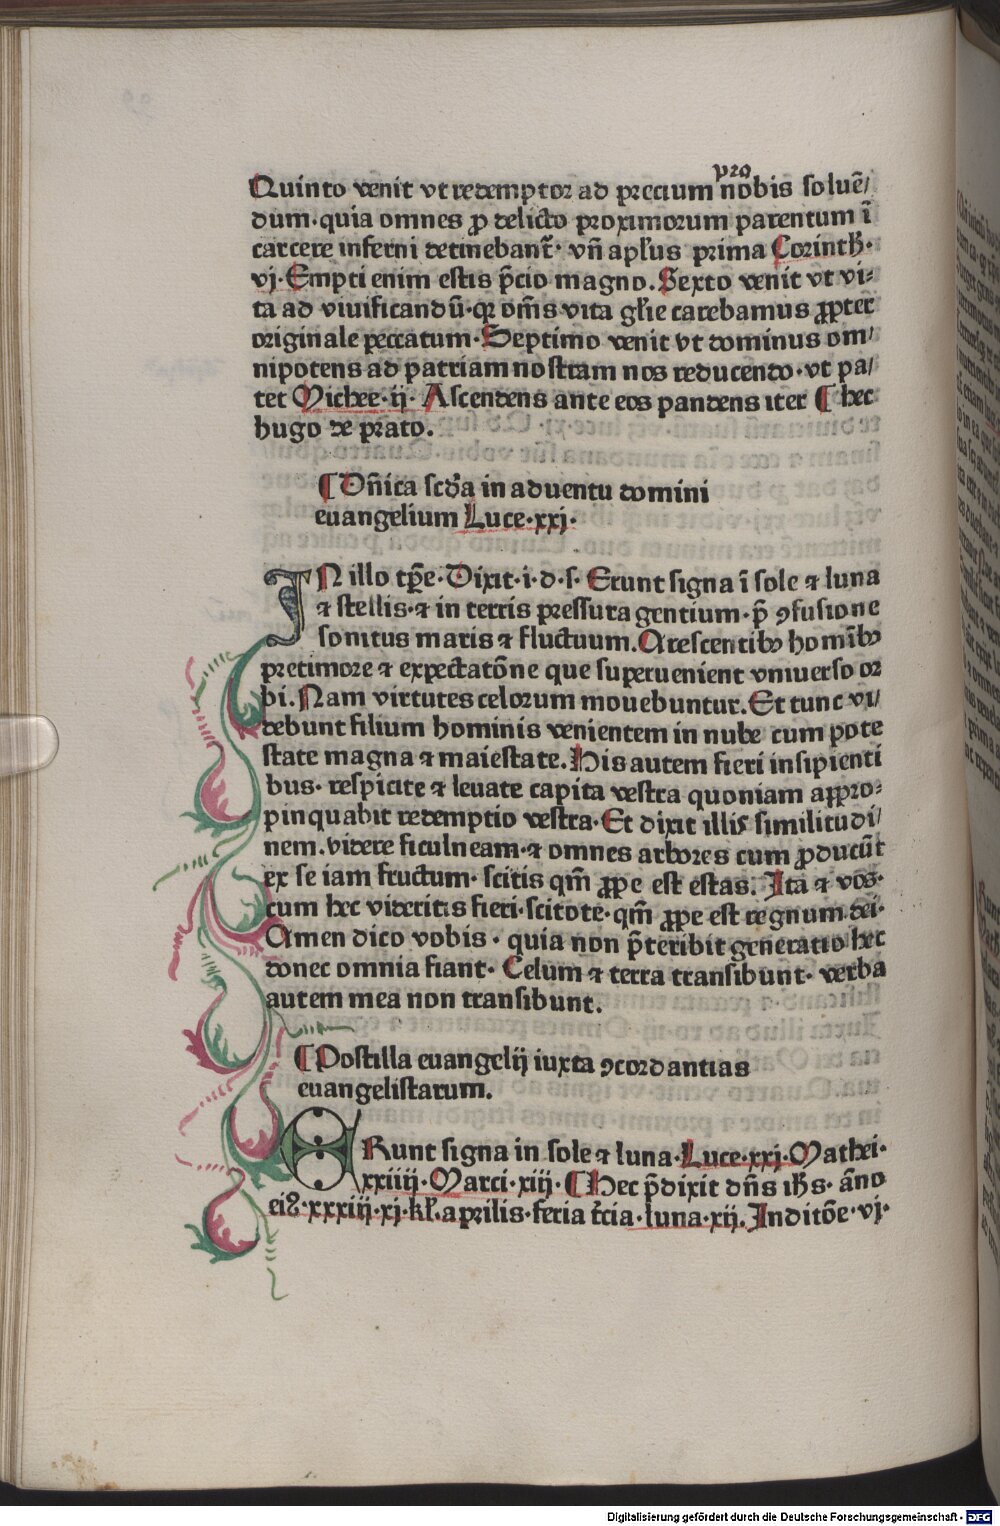 pro
Quinto venit vt redemptor ad precium nobis soluē/
dum·quia omnes ꝓ delicto proximorum parentum ī
carcere inferni detinebant̄· vn̄ apl'us prima Corinth̄·
vj·Empti enim estis p̄cio magno.Sexto venit vt vi⸗
ta ad viuificandū·qꝛ om̄s vita gl'ie carebamus ꝓpter
originale peccatum·Septimo venit vt dominus om/
nipotens ad patriam nostram nos reducendo·vt pa/
tet Michee·ij·Ascendens ante eos pandens iter ¶ hec
hugo de prato.
¶ Dn̄ica scd'a in aduentu domini
euangelium Luce·xxj·
IN illo tp̄e·Dixit·i·d·s· Erunt signa ī sole ⁊ luna
⁊ stellis·⁊ in terris pressura gentium·p̄ ꝯfusione
sonitus maris ⁊ fluctuum.Arescentibꝫ homībꝫ
pretimore ⁊ expectatōne que superuenient vniuerso or
bi.Nam virtutes celorum mouebuntur.Et tunc vi/
debunt filium hominis venientem in nube cum pote
state magna ⁊ maiestate.His autem fieri insipienti
bus· respicite ⁊ leuate capita vestra quoniam appro⸗
pinquabit redemptio vestra·Et dixit illis similitudi/
nem.videre ficulneam·⁊ omnes arbores cum ꝓducūt
ex se iam fructum· scitis qm̄ ꝓpe est estas. Ita ⁊ vos·
cum hec videritis fieri·scitote·qm̄ ꝓpe est regnum dei·
Amen dico vobis· quia non p̄teribit generatio hec
donec omnia fiant· Celum ⁊ terra transibunt· verba
autem mea non transibunt.
¶ Postilla euangelij iuxta ꝯcordantias
euangelistarum.
ERunt signa in sole ⁊ luna·Luce·xxj·Mathei·
xxiiij·Marci·xiij·¶ Hec p̄dixit dn̄s ih̄s· āno
eiꝰ·xxxiij·xj·kl'·aprilis·feria t̄cia·luna·xij.Inditōe·vj·
Digitalisierung gefördert durch die Deutsche Forschungsgemeinschaft - DFG